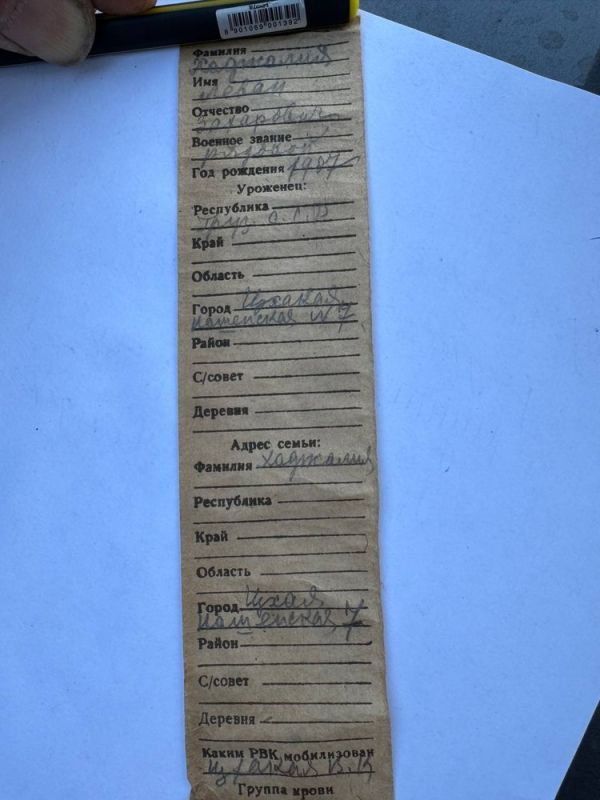 8 901069 901392
Фамилия
Хаджалия
Имя
Леван
Отчество
Захарович
Военное звание
рядовой
Год рождения 1907
Уроженец:
Республика
Груз. С.С.Р
Край
Область
Город Цхакая
№ 7
Район
С/совет
Деревня
Адрес семьи:
Фамилия Хаджалия
Республика
Край
Область
Город Цхая
7
Район
С/совет
Деревня
Каким РВК мобилизован
Цхакая В.К
Группа крови